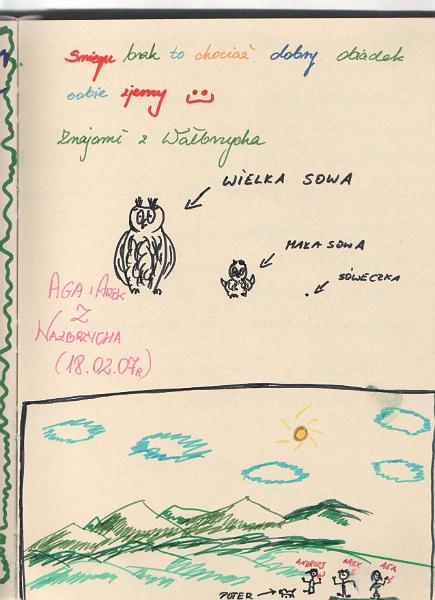 Śniegu brak to chociaż dobry obiadek
sobie zjemy
Znajomi z Wałbrzycha
WIELKA SOWA
MAŁA SOWA
SÓWECZKA
AGA i AREK
Z
WAŁBRZYCHA
(18.02.07r)
ANDRZEJ
AREK
AGA
POTER